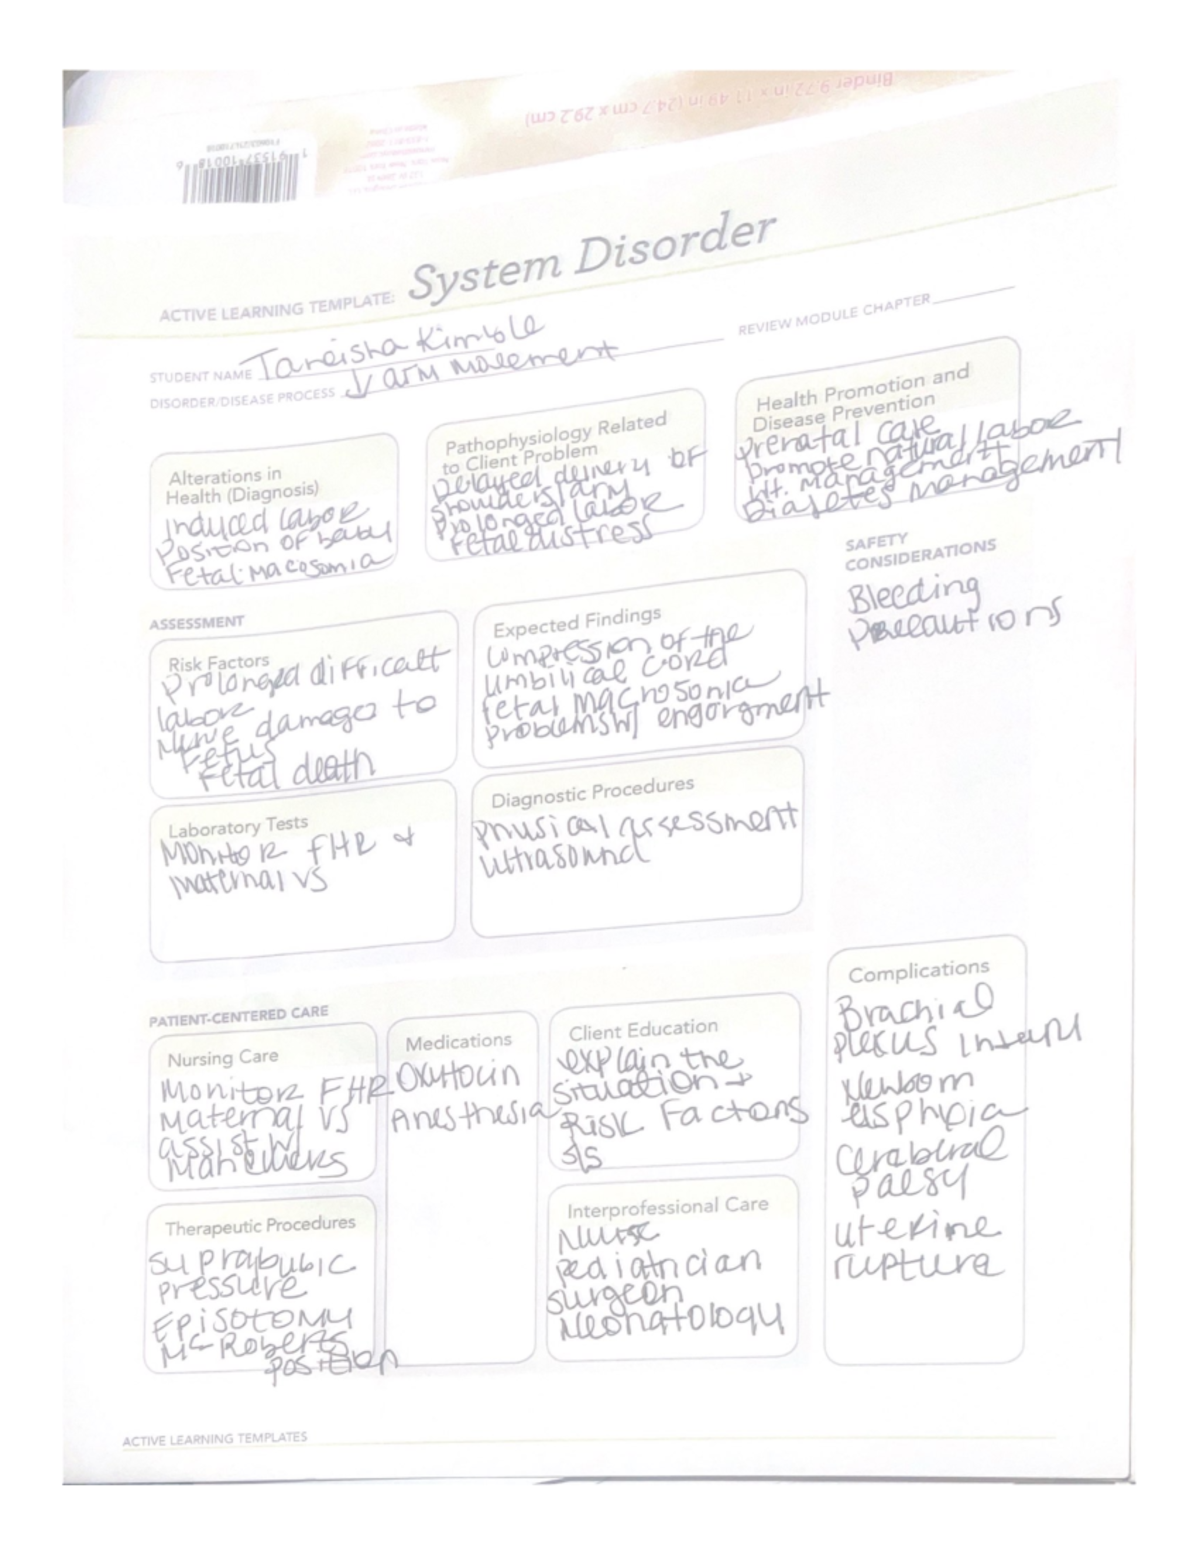 Binder 9.72 in x 11.49 in (24.7 cm x 29.2 cm)
System Disorder
ACTIVE LEARNING TEMPLATE:
STUDENT NAME Taneisha Kimble
REVIEW MODULE CHAPTER
DISORDER/DISEASE PROCESS ↓ arm movement
Alterations in
Health (Diagnosis)
Induced labor
Position of baby
Fetal macosomia
Pathophysiology Related
to Client Problem
Delayed delivery of
shoulders/arm
Prolonged labor
Fetal distress
Health Promotion and
Disease Prevention
prenatal care
promote natural labor
wt. management
Diabetes management
SAFETY
CONSIDERATIONS
Bleeding
precautions
ASSESSMENT
Risk Factors
Prolonged difficalt
labor
Nerve damage to
Fetus
Fetal death
Expected Findings
compression of the
umbilical cord
fetal macrosonia
problems w/ engorgment
Laboratory Tests
Monitor FHR +
maternal VS
Diagnostic Procedures
physical assessment
ultrasound
PATIENT-CENTERED CARE
Nursing Care
Monitor FHR
Maternal VS
assist w/
Manewers
Medications
Oxytocin
Anesthesia
Client Education
explain the
situation +
Risk Factors
s/s
Therapeutic Procedures
suprapubic
pressure
Episotomy
McRoberts
position
Interprofessional Care
Nurse
pediatrician
surgeon
Neonatology
Complications
Brachial
plexus
Newborn
asphyxia
cerabral
palsy
uterine
rupture
ACTIVE LEARNING TEMPLATES